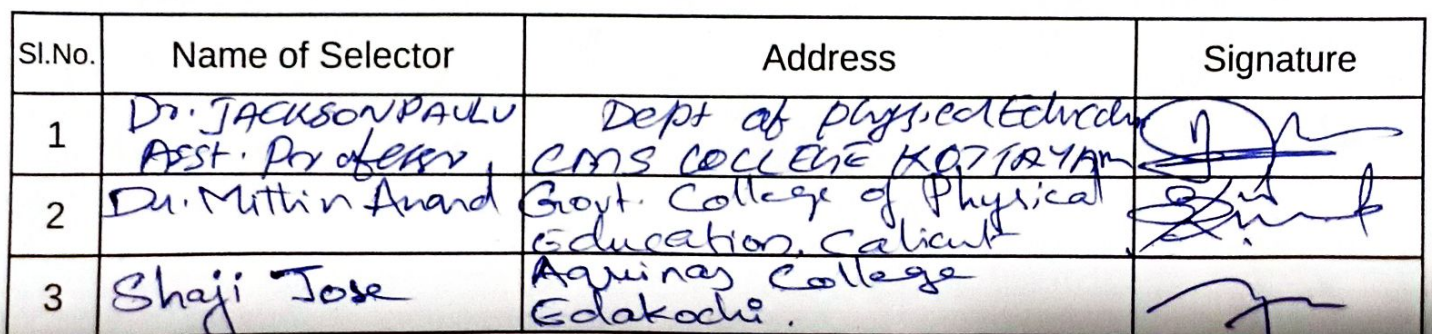 Sl.No. Name of Selector Address Signature
1 Dr. JACKSON PAULU Dept of physical Educatn
Asst. Professor, CMS COLLEGE KOTTAYAM
2 Dr. Mithin Anand Govt. College of Physical
Education, Calicut
3 Shaji Jose Aquinas College
Edakochi.